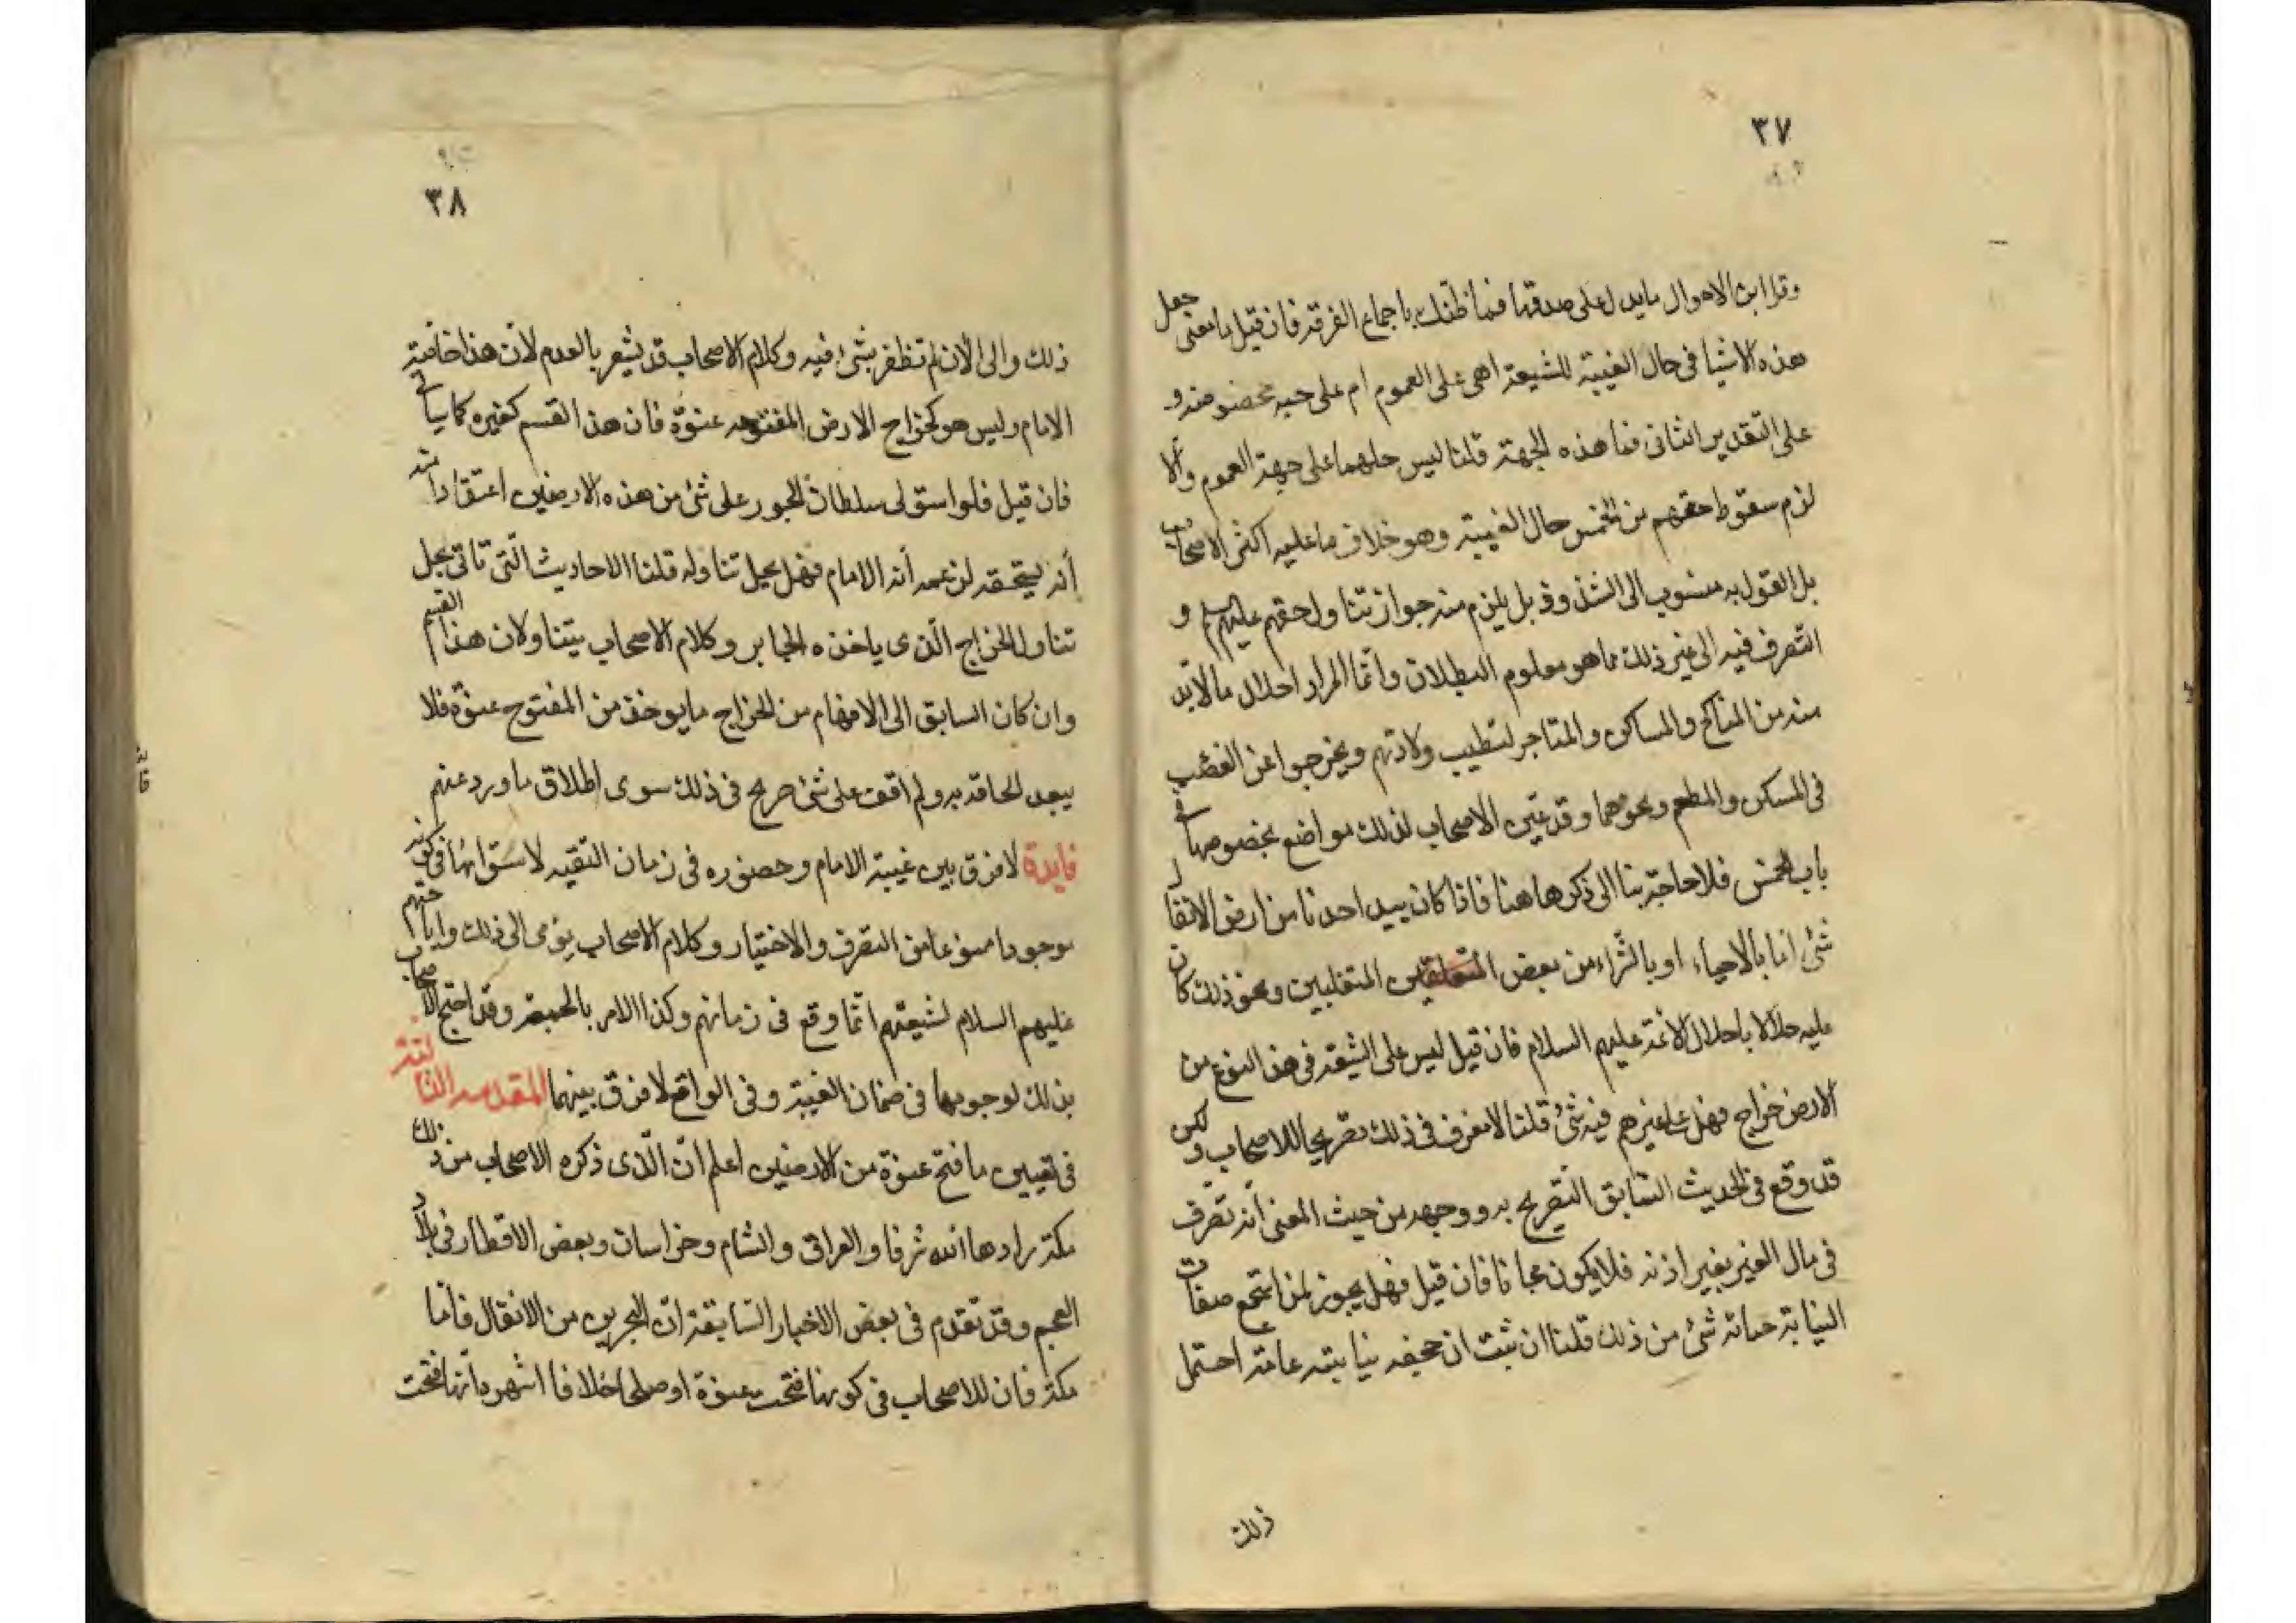 ٣٧
وقراين الاحوال مايدل على صدقها فما ظنك باجماع الفرقة فان قيل ما معنى جعل
هذه الاشيا فى حال الغيبة للشيعة اهى على العموم ام على جهة مخصوصة و
على التقدير الثانى فما هذه الجهة قلنا ليس حلهما على جهة العموم والا
لزم سقوط حقهم من الخمس حال الغيبة وهو خلاف ما عليه اكثر الاصحاب
بل القول به منسوب الى الشذوذ بل يلزم منه جواز تناول حقهم عليهم و
التصرف فيه الى غير ذلك مما هو معلوم البطلان وانما المراد احلال ما لا بد
منه من المناكح والمساكن والمتاجر لتطيب ولادتهم ويخرجوا عن الغصب
فى المسكن والمطعم ونحوهما وقد عين الاصحاب لذلك مواضع بخصوصها فى
باب الخمس فلا حاجة بنا الى ذكرها هنا فاذا كان بيد احدنا من ارض الانفال
شئ اما بالاحياء او بالشراء من بعض المتغلبين ونحو ذلك كان
عليه حلالا باحلال الائمة عليهم السلام فان قيل ليس على الشيعة فى هذا النوع من
الارض خراج فهل على غيرهم فيه شئ قلنا لا نعرف فى ذلك تصريحا للاصحاب ولكن
قد وقع فى الحديث السابق التصريح به ووجهه من حيث المعنى انه تصرف
فى مال الغير بغير اذنه فلا يكون مجانا فان قيل فهل يجوز لمن استجمع صفات
النيابة حباته شئ من ذلك قلنا ان ثبت ان نيابته عامة احتمل
ذلك
٣٨
ذلك والى الان لم نظفر بشئ فيه وكلام الاصحاب قد يشعر بالعدم لان هذا خاصة
الامام وليس هو كخراج الارض المفتوحه عنوة فان هذا القسم كغيره كما ياتى
فان قيل فلو استولى سلطان الجور على شئ من هذه الارضين اعتقادا منه
انه يستحقه لزعمه انه الامام فهل يحل تناوله قلنا الاحاديث التى تاتى بحل
تناول الخراج الذى ياخذه الجاير وكلام الاصحاب يتناولان هذا القسم
وان كان السابق الى الافهام من الخراج ما يوخذ من المفتوح عنوة فلا
يبعد الحاقه به ولم اقف على شئ صريح فى ذلك سوى اطلاق ما ورد عنهم
فايدة لا فرق بين غيبة الامام وحضوره فى زمان التقيه لاستوائها فى كونه
موجودا ممنوعا من التصرف والاختيار وكلام الاصحاب يؤمى الى ذلك واباحتهم
عليهم السلام لشيعتهم انما وقع فى زمانهم وكذا الامر وقد احتج الاصحاب
بذلك لوجوبها فى الغيبة وفى الواقع لا فرق بينهما المقدمه الثالثة
فى تعيين ما فتح عنوة من الارضين اعلم ان الذى ذكره الاصحاب من ذلك
مكة زادها الله شرفا والعراق والشام وخراسان وبعض الاقطار فى بلاد
العجم وقد تقدم فى بعض الاخبار السابقة ان البحرين من الانفال فاما
مكة فان للاصحاب فى كونها فتحت عنوة او صلحا اختلافا اشهره انها فتحت